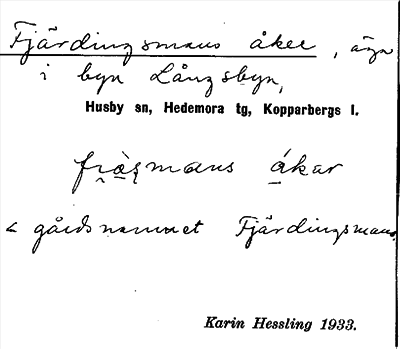 Fjärdingsmans åker, äga
i byn Långsbyn,
Husby sn, Hedemora tg, Kopparbergs l.
åkar
< gårdsnamnet Fjärdingsmans.
Karin Hessling 1933.